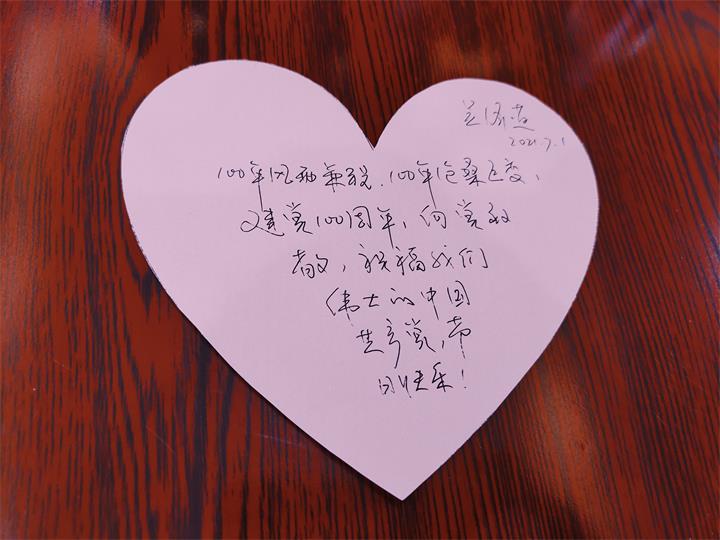 2021.7.1
100年风雨兼程、100年沧桑巨变、
建党100周年,向党致
敬,祝福我们
伟大的中国
共产党,节
日快乐!